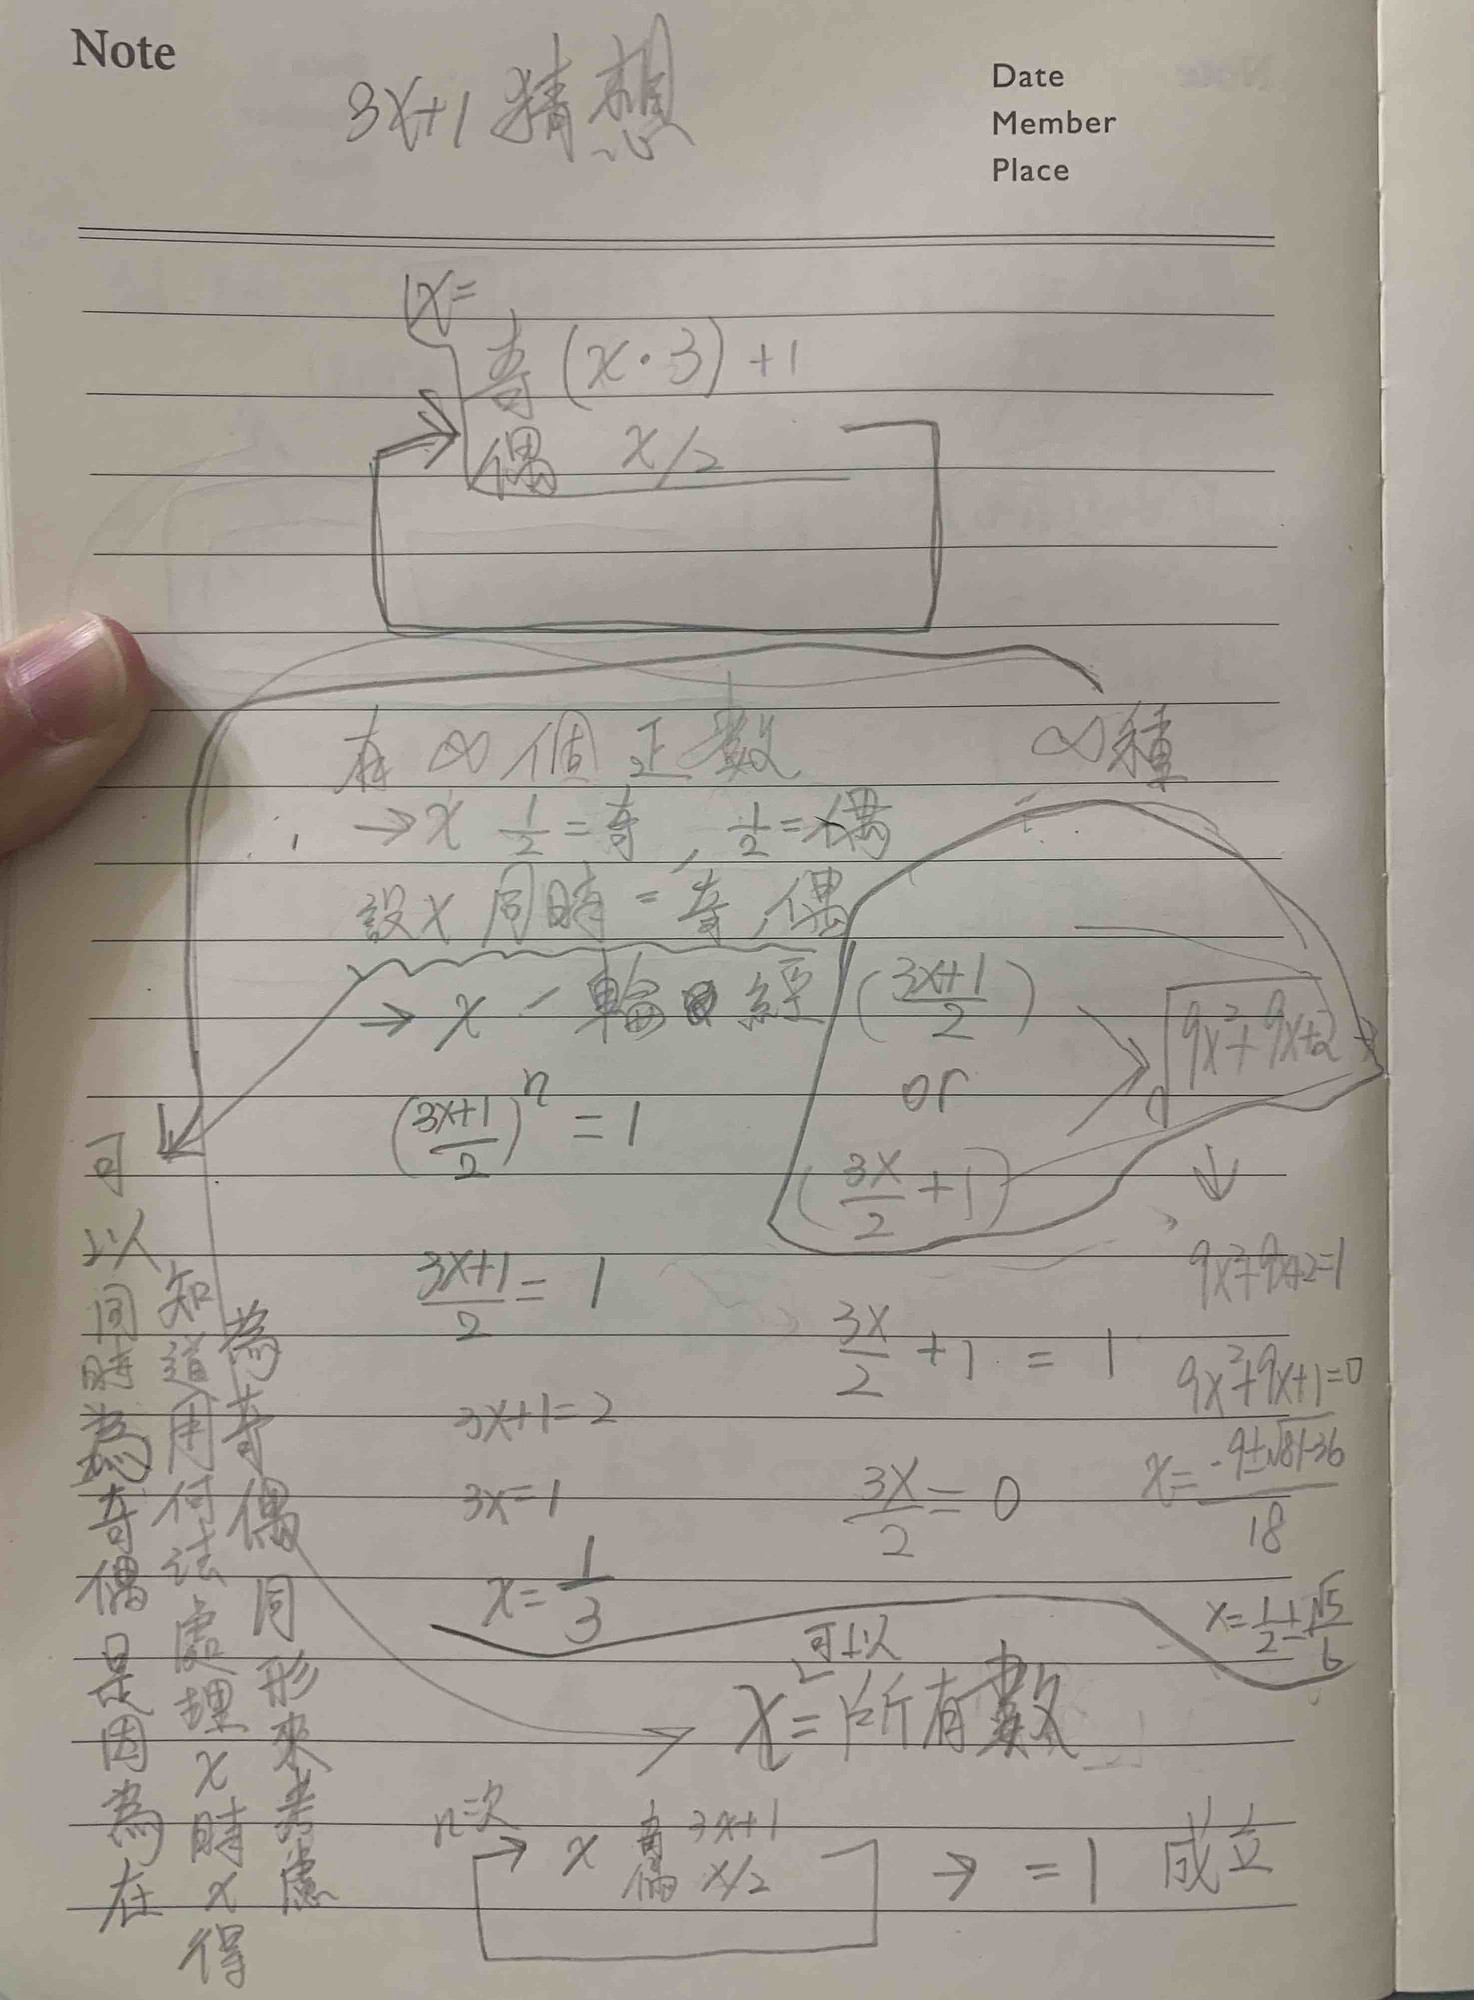 Note
Date
Member
Place
3x+1 猜想
x=
奇 (x·3)+1
偶 x/2
有 ∞ 個 正數
∞種
→ x 1/2=奇, 1/2=偶
設 x 同時=奇,偶
→ x 一輪 經 (3x+1/2)
or
(3x/2+1)
9x²+9x+2
(3x+1/2)ⁿ = 1
3x+1/2 = 1
3x+1=2
3x=1
x=1/3
3x/2+1 = 1
3x/2 = 0
9x²+9x+2=1
9x²+9x+1=0
x=-9±√81-36/18
x=1/2±√5/6
可以同時為奇偶是因為在
知道用何法處理x時x得
為奇偶同形來考慮
可以
x=所有數
n次
→ x 奇 3x+1
偶 x/2
→ =1 成立